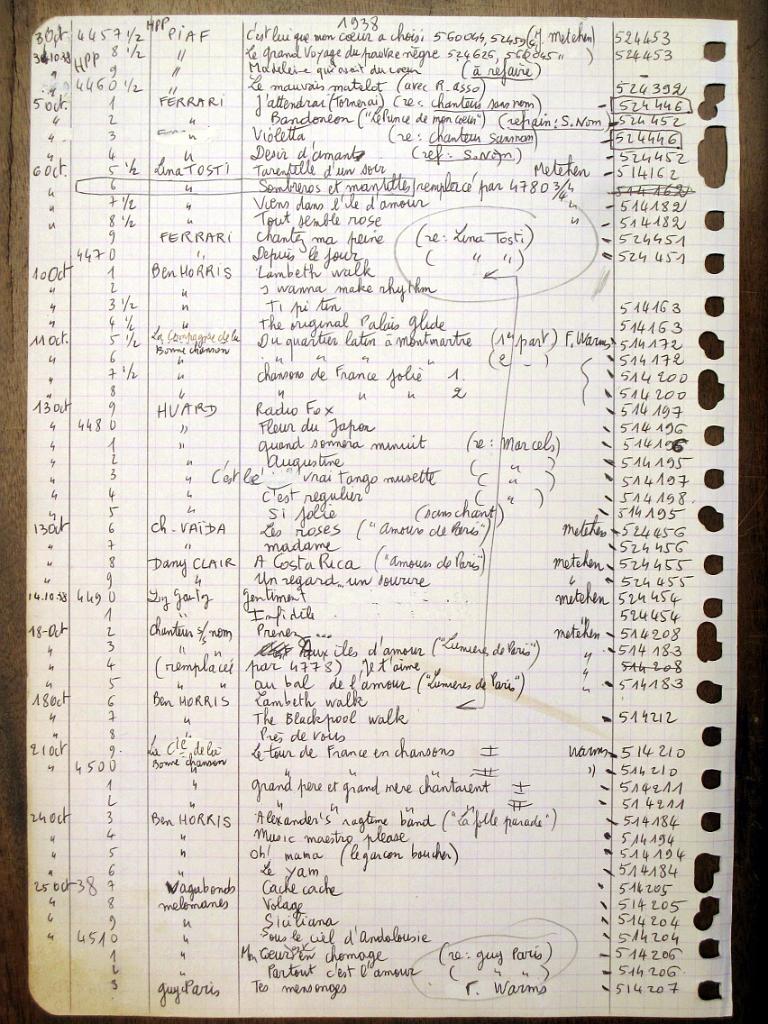 1938
3 Oct 4457 1/2 HPP PIAF C'est lui que mon coeur a choisi 560044, 52459 (J. Metehen) 524453
8 1/2 " Le grand voyage du pauvre nègre 524626, 560045 " ) 524453
HPP 9 " Madeleine qu'avait du coeur (à refaire)
" 4460 1/2 " Le mauvais matelot (avec R. asso) 524392
5 oct. 1 FERRARI J'attendrai (Tornerai) (re: chanteur sans nom) 524446
" 2 " Bandoneon ("Le Prince de mon coeur") (refrain: S. Nom) 524452
" 3 " Violetta (re: chanteur sansnom) 524446
" 4 " Desir d'amants (ref: S. Nom) 524452
6 Oct. 5 1/2 Lina TOSTI Tarentelle d'un soir Metehen 514162
" 6 " Sombreros et mantilles remplacé par 4780 3/4 " 514162
" 7 1/2 " Viens dans l'île d'amour " 514182
" 8 1/2 " Tout semble rose " 514182
9 FERRARI Chantez ma peine (re: Lina Tosti) 524451
4470 " Depuis le jour ( " " ) 524451
10 Oct 1 Ben HORRIS Lambeth walk
" 2 " I wanna make rhythm
" 3 1/2 " Ti pi tin 514163
" 4 1/2 " The original Palais glide 514163
11 Oct. 5 1/2 La Compagnie de la Bonne chanson Du quartier latin à montmartre (1e part) F. Warms 514172
" 6 " " " " " (2 - ) 514172
7 1/2 " chansons de France jolie 1. 514200
8 " " " " 2 514200
13 Oct 9 HUARD Radio Fox 514197
" 4480 " Fleur du Japon 514196
" 1 " quand sonnera minuit (re: Marcels) 514196
" 2 " Augustine ( " ) 514195
" 3 " C'est le vrai tango musette ( " ) 514197
" 4 " C'est regulier ( " ) 514198
" 5 " Si jolie (sans chant) 514195
13 Oct 6 Ch. VAÏDA Les roses ("Amours de Paris") metehen 524456
" 7 " madame 524456
" 8 Dany CLAIR A Costa Rica ("amours de Paris") metehen 524455
" 9 " Un regard... un sourire " 524455
14.10.38 4490 gentiment metehen 524454
1 Infidile 524454
18-Oct 2 chanteur s/s nom Prenez ... metehen 514208
" 3 " Aux îles d'amour ("Lumieres de Paris") " 514183
" 4 (remplacé par 4778) Je t'aime " 514208
" 5 " " au bal de l'amour ("Lumieres de Paris") " 514183
18 Oct 6 Ben HORRIS Lambeth walk
" 7 " The Blackpool walk 514212
" 8 " Près de vous
21 Oct 9. La Cie de la Bonne chanson Le tour de France en chansons I Warms 514210
" 4500 " " II " 514210
1 " grand pere et grand mere chantaient I 514211
2 " " " II 514211
24 Oct 3 Ben HORRIS Alexander's ragtime band ("la folle parade") 514184
" 4 " Music maestro please 514194
" 5 " Oh! mama (le garçon boucher) 514194
" 6 " Le yam 514184
25 Oct 38 7 Vagabonds Cache cache 514205
" 8 melomanes Volage 514205
" 9 " Siciliana 514204
" 4510 " Sous le ciel d'Andalousie 514204
1 " Mon Coeur en chomage (re: guy Paris) 514206
2 " Partout c'est l'amour ( " " ) 514206
3 guy Paris Tes mensonges F. Warms 514207